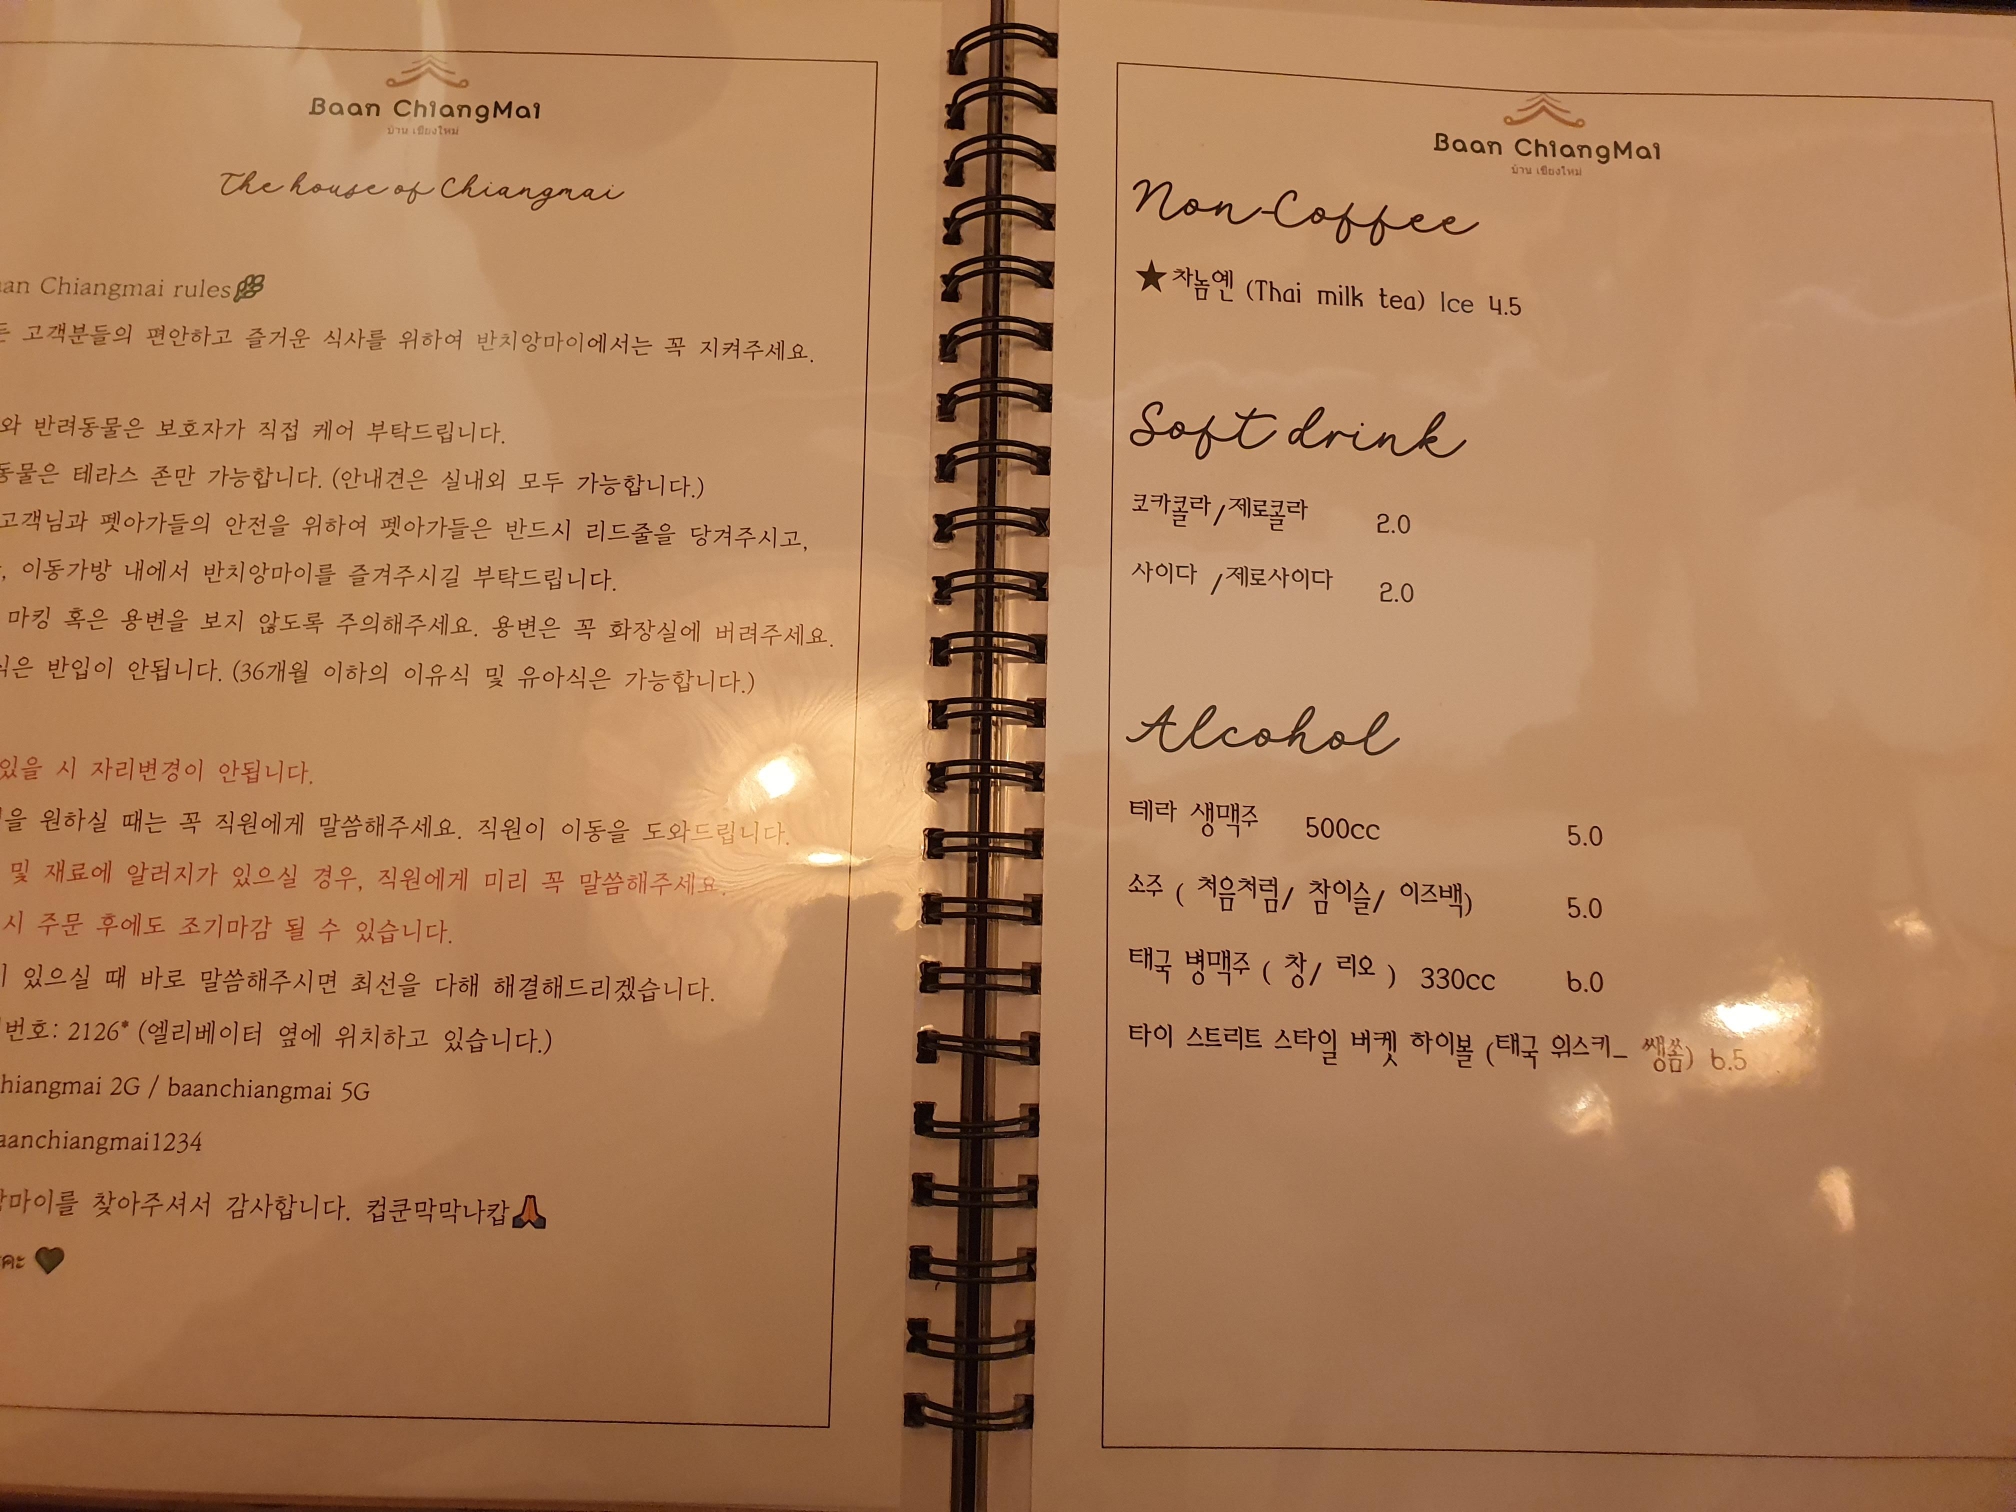 Baan ChiangMai
บ้าน เชียงใหม่
The house of Chiangmai
Chiangmai rules
고객분들의 편안하고 즐거운 식사를 위하여 반치앙마이에서는 꼭 지켜주세요.
와 반려동물은 보호자가 직접 케어 부탁드립니다.
동물은 테라스 존만 가능합니다. (안내견은 실내외 모두 가능합니다.)
고객님과 펫아가들의 안전을 위하여 펫아가들은 반드시 리드줄을 당겨주시고,
, 이동가방 내에서 반치앙마이를 즐겨주시길 부탁드립니다.
마킹 혹은 용변을 보지 않도록 주의해주세요. 용변은 꼭 화장실에 버려주세요.
식은 반입이 안됩니다. (36개월 이하의 이유식 및 유아식은 가능합니다.)
있을 시 자리변경이 안됩니다.
을 원하실 때는 꼭 직원에게 말씀해주세요. 직원이 이동을 도와드립니다.
및 재료에 알러지가 있으실 경우, 직원에게 미리 꼭 말씀해주세요.
시 주문 후에도 조기마감 될 수 있습니다.
있으실 때 바로 말씀해주시면 최선을 다해 해결해드리겠습니다.
번호: 2126* (엘리베이터 옆에 위치하고 있습니다.)
hiangmai 2G / baanchiangmai 5G
aanchiangmai1234
마이를 찾아주셔서 감사합니다. 컵쿤막막나캅🙏
คะ 💚
Baan ChiangMai
บ้าน เชียงใหม่
Non-Coffee
★차놈옌 (Thai milk tea) Ice 4.5
Soft drink
코카콜라/제로콜라 2.0
사이다 /제로사이다 2.0
Alcohol
테라 생맥주 500cc 5.0
소주 ( 처음처럼/ 참이슬/ 이즈백) 5.0
태국 병맥주 ( 창/ 리오 ) 330cc 6.0
타이 스트리트 스타일 버켓 하이볼 (태국 위스키_ 쌩쏨) 6.5